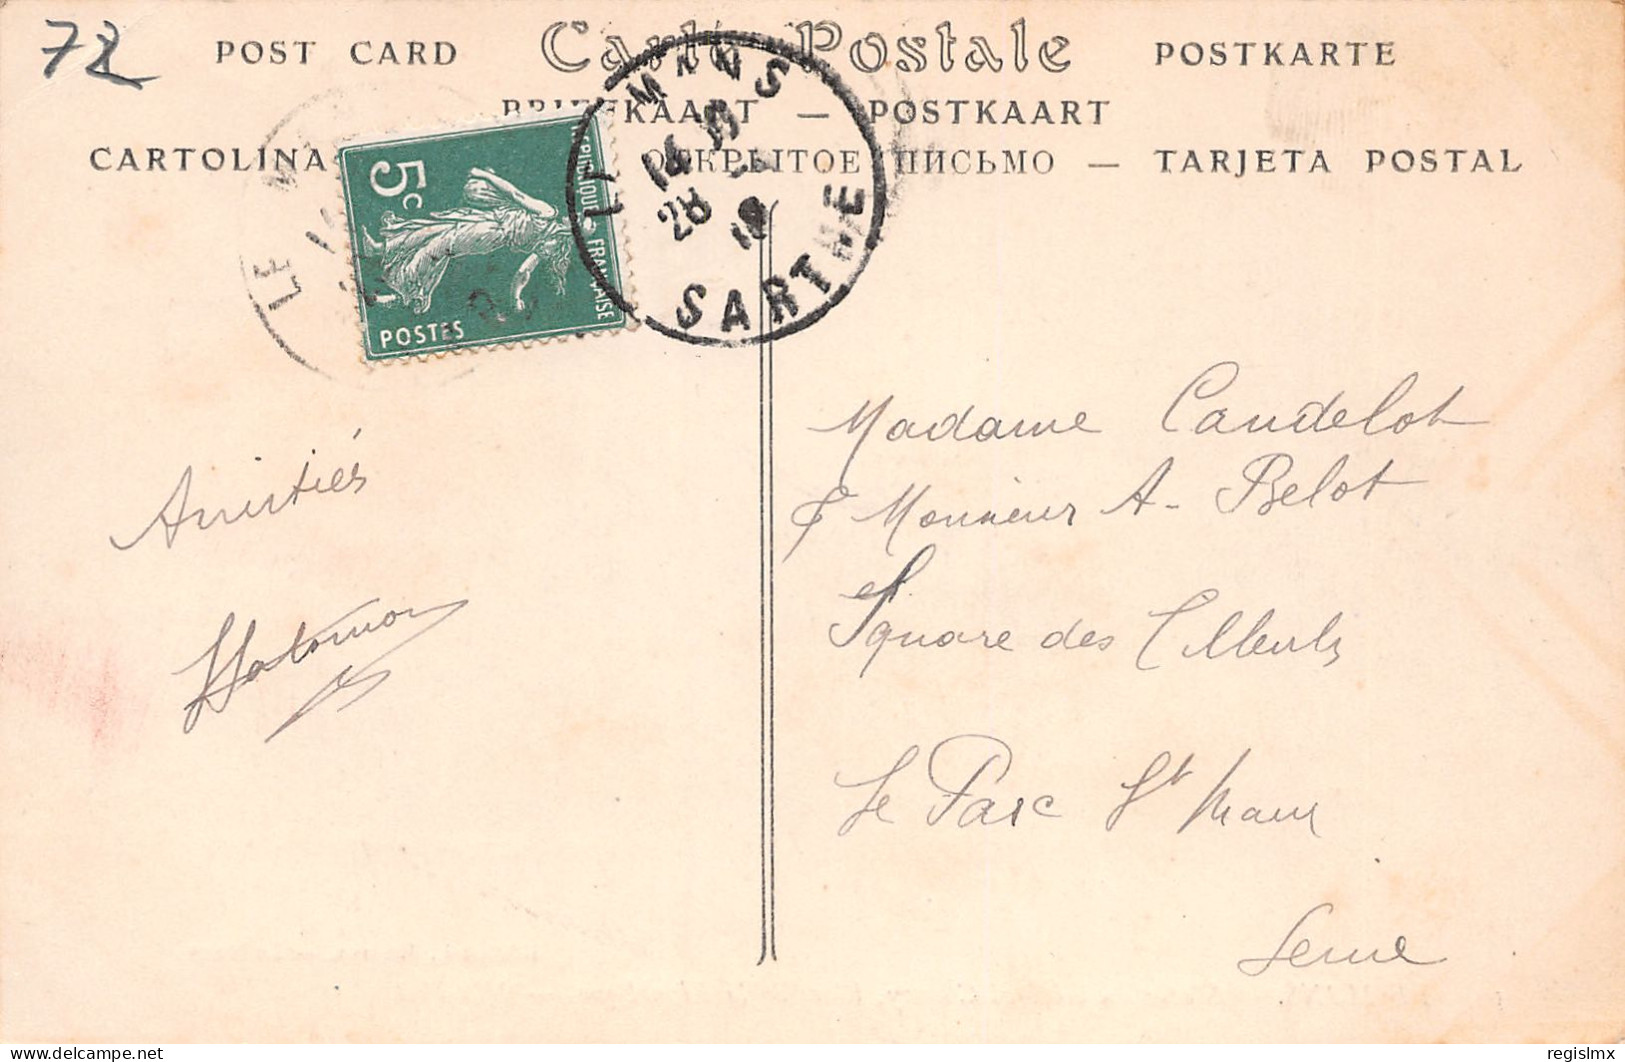 72
POST CARD Carte Postale POSTKARTE
BRIEFKAART — POSTKAART
CARTOLINA ОТКРЫТОЕ ПИСЬМО — TARJETA POSTAL
LE MANS
14
28
SARTHE
LE M
5c
RÉPUBLIQUE FRANÇAISE
POSTES
Amitiés
Madame Caudelot
Monsieur A. Belot
Square des Tilleuls
Le Parc St Maur
Seine
delcampe.net
regislmx